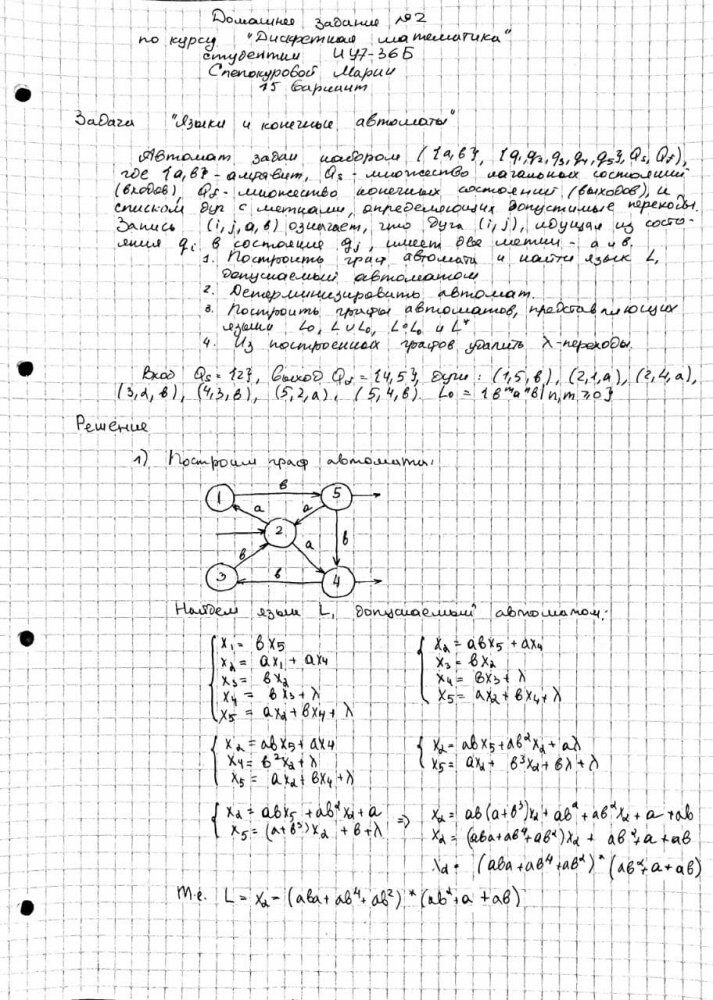 Домашнее задание №2
по курсу "Дискретная математика"
студентки ИУ7-36Б
Слепокуровой Марии
15 вариант
Задача "Языки и конечные автоматы"
Автомат задан набором ({a,b}, {q₁,q₂,q₃,q₄,q₅}, Qs, Qf),
где {a,b} - алфавит, Qs - множество начальных состояний
(входов), Qf - множество конечных состояний (выходов), и
списком дуг с метками, определяющих допустимые переходы.
Запись (i,j,a,b) означает, что дуга (i,j), идущая из состо-
яния qi в состояние qj, имеет две метки - a и b.
1. Построить граф автомата и найти язык L,
допускаемый автоматом
2. Детерминизировать автомат.
3. Построить графы автоматов, представляющих
языки L₀, L∪L₀, L∘L₀ и L*
4. Из построенных графов удалить λ-переходы.
Вход Qs = {2}, выход Qf = {4,5}, дуги: (1,5,b), (2,1,a), (2,4,a),
(3,2,b), (4,3,b), (5,2,a), (5,4,b). L₀ = {bᵐaⁿb | n,m ≥ 0}
Решение
1) Построим граф автомата:
1 b 5
a a
2 b
b a
3 b 4
Найдем язык L, допускаемый автоматом:
x₁ = bx₅
x₂ = ax₁ + ax₄
x₃ = bx₂
x₄ = bx₃ + λ
x₅ = ax₂ + bx₄ + λ
x₂ = abx₅ + ax₄
x₃ = bx₂
x₄ = bx₃ + λ
x₅ = ax₂ + bx₄ + λ
x₂ = abx₅ + ax₄
x₄ = b²x₂ + λ
x₅ = ax₂ + bx₄ + λ
x₂ = abx₅ + ab²x₂ + aλ
x₅ = ax₂ + b³x₂ + bλ + λ
x₂ = abx₅ + ab²x₂ + a
x₅ = (a+b³)x₂ + b + λ
=> x₂ = ab(a+b³)x₂ + ab² + ab²x₂ + a + ab
x₂ = (aba+ab⁴+ab²)x₂ + ab² + a + ab
x₂ = (aba+ab⁴+ab²)*(ab²+a+ab)
Т.е. L = x₂ = (aba+ab⁴+ab²)*(ab²+a+ab)